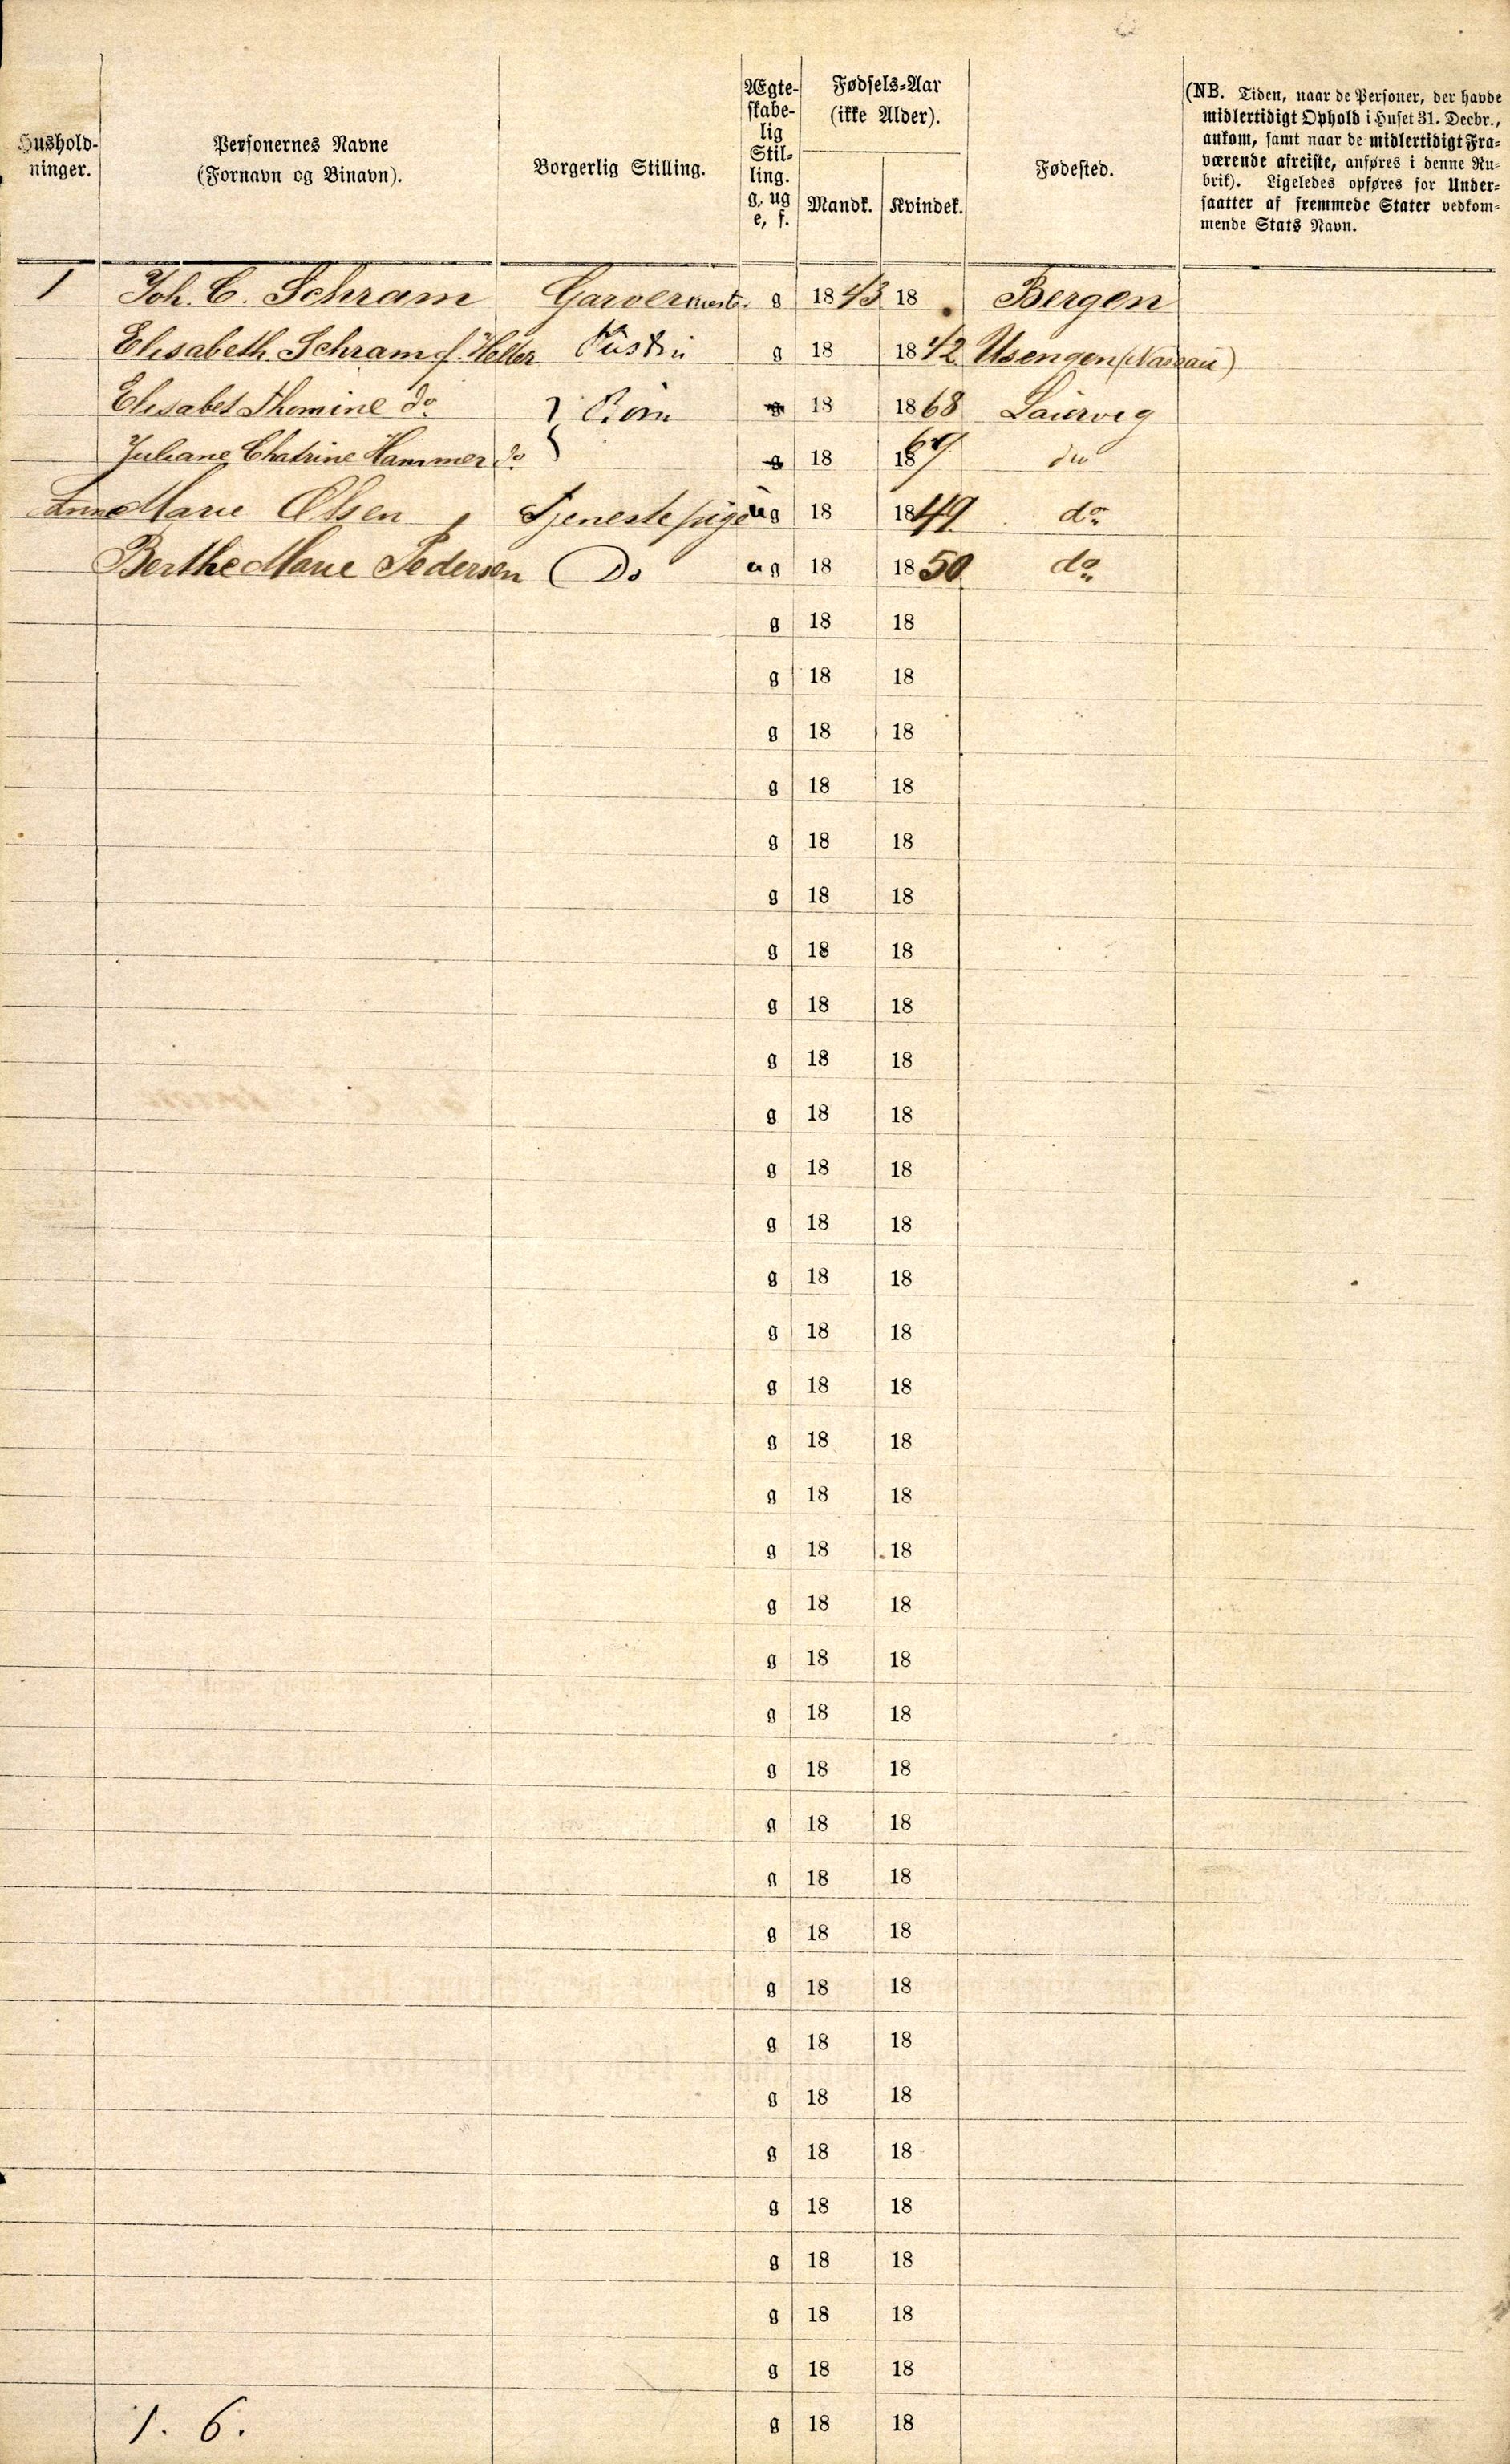 Hushold-
ninger.
Personernes Navne
(Fornavn og Binavn).
Borgerlig Stilling.
Ægte-
skabe-
lig
Stil-
ling.
g, ug
e, f.
Fødsels-Aar
(ikke Alder).
Mandk. Kvindek.
Fødested.
(NB. Tiden, naar de Personer, der havde
midlertidigt Ophold i Huset 31. Decbr.,
ankom, samt naar de midlertidigt Fra-
værende afreiste, anføres i denne Ru-
brik). Ligeledes opføres for Under-
saatter af fremmede Stater vedkom-
mende Stats Navn.
1 Joh. C. Schram Garvermest. g 1843 18 Bergen
Elisabeth Schram f. Heller Hustru g 18 1842 Usengen (Nassau)
Elisabet Thomine do Børn g 18 1868 Laurvig
Juliane Chatrine Hammer do g 18 1869 do
Anne Marie Olsen Tjenestepige ug 18 1849 do
Berthe Marie Pedersen Do ug 18 1850 do
g 18 18
g 18 18
g 18 18
g 18 18
g 18 18
g 18 18
g 18 18
g 18 18
g 18 18
g 18 18
g 18 18
g 18 18
g 18 18
g 18 18
g 18 18
g 18 18
g 18 18
g 18 18
g 18 18
g 18 18
g 18 18
g 18 18
g 18 18
g 18 18
g 18 18
g 18 18
g 18 18
g 18 18
g 18 18
g 18 18
g 18 18
g 18 18
g 18 18
1. 6. g 18 18